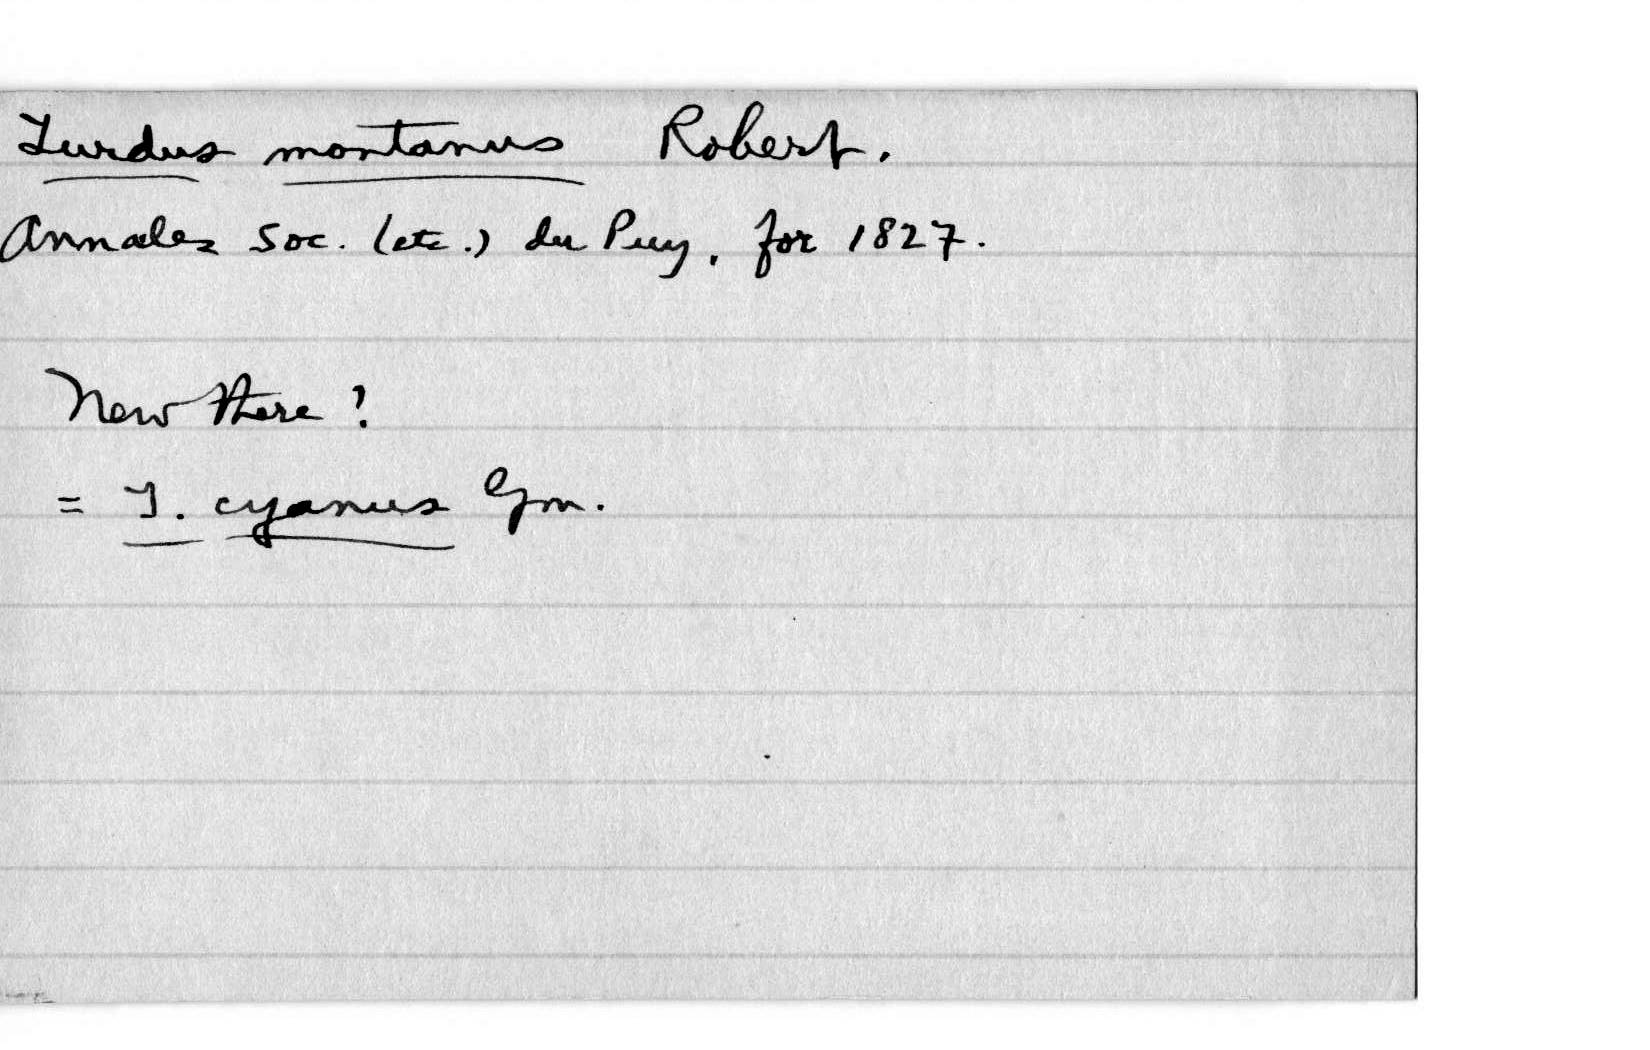 Turdus montanus Robert.
Annales Soc. (etc.) du Puy, for 1827.
New there?
= T. cyanus Gm.